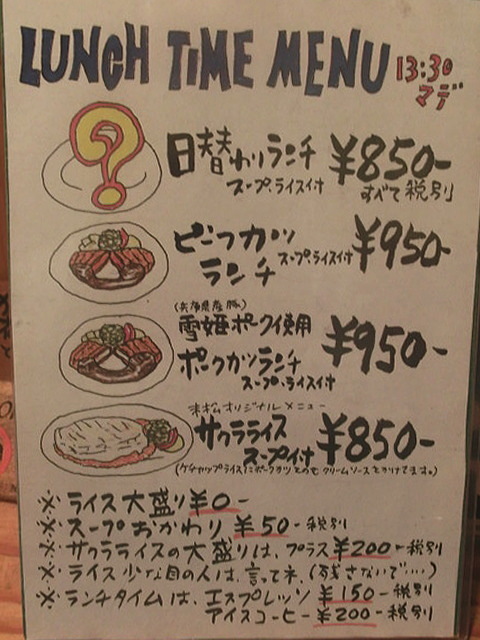 LUNCH TIME MENU 13:30
マデ
日替わりランチ ¥850-
スープ.ライス付 すべて税別
ビーフカツ ¥950-
ランチ スープ.ライス付
(兵庫県産豚)
雪姫ポーク使用
ポークカツランチ ¥950-
スープ.ライス付
末松オリジナルメニュー
サクラライス ¥850-
スープ付
(ケチャップライスにポークカツとクリームソースとかけてます。)
※ ライス大盛り ¥0-
※ スープおかわり ¥50-税別
※ サクラライスの大盛りは、プラス ¥200-税別
※ ライス少な目の人は、言ってネ、(残さないで・・・・)
※ ランチタイムは、エスプレッソ ¥150-税別
アイスコーヒー ¥200-税別